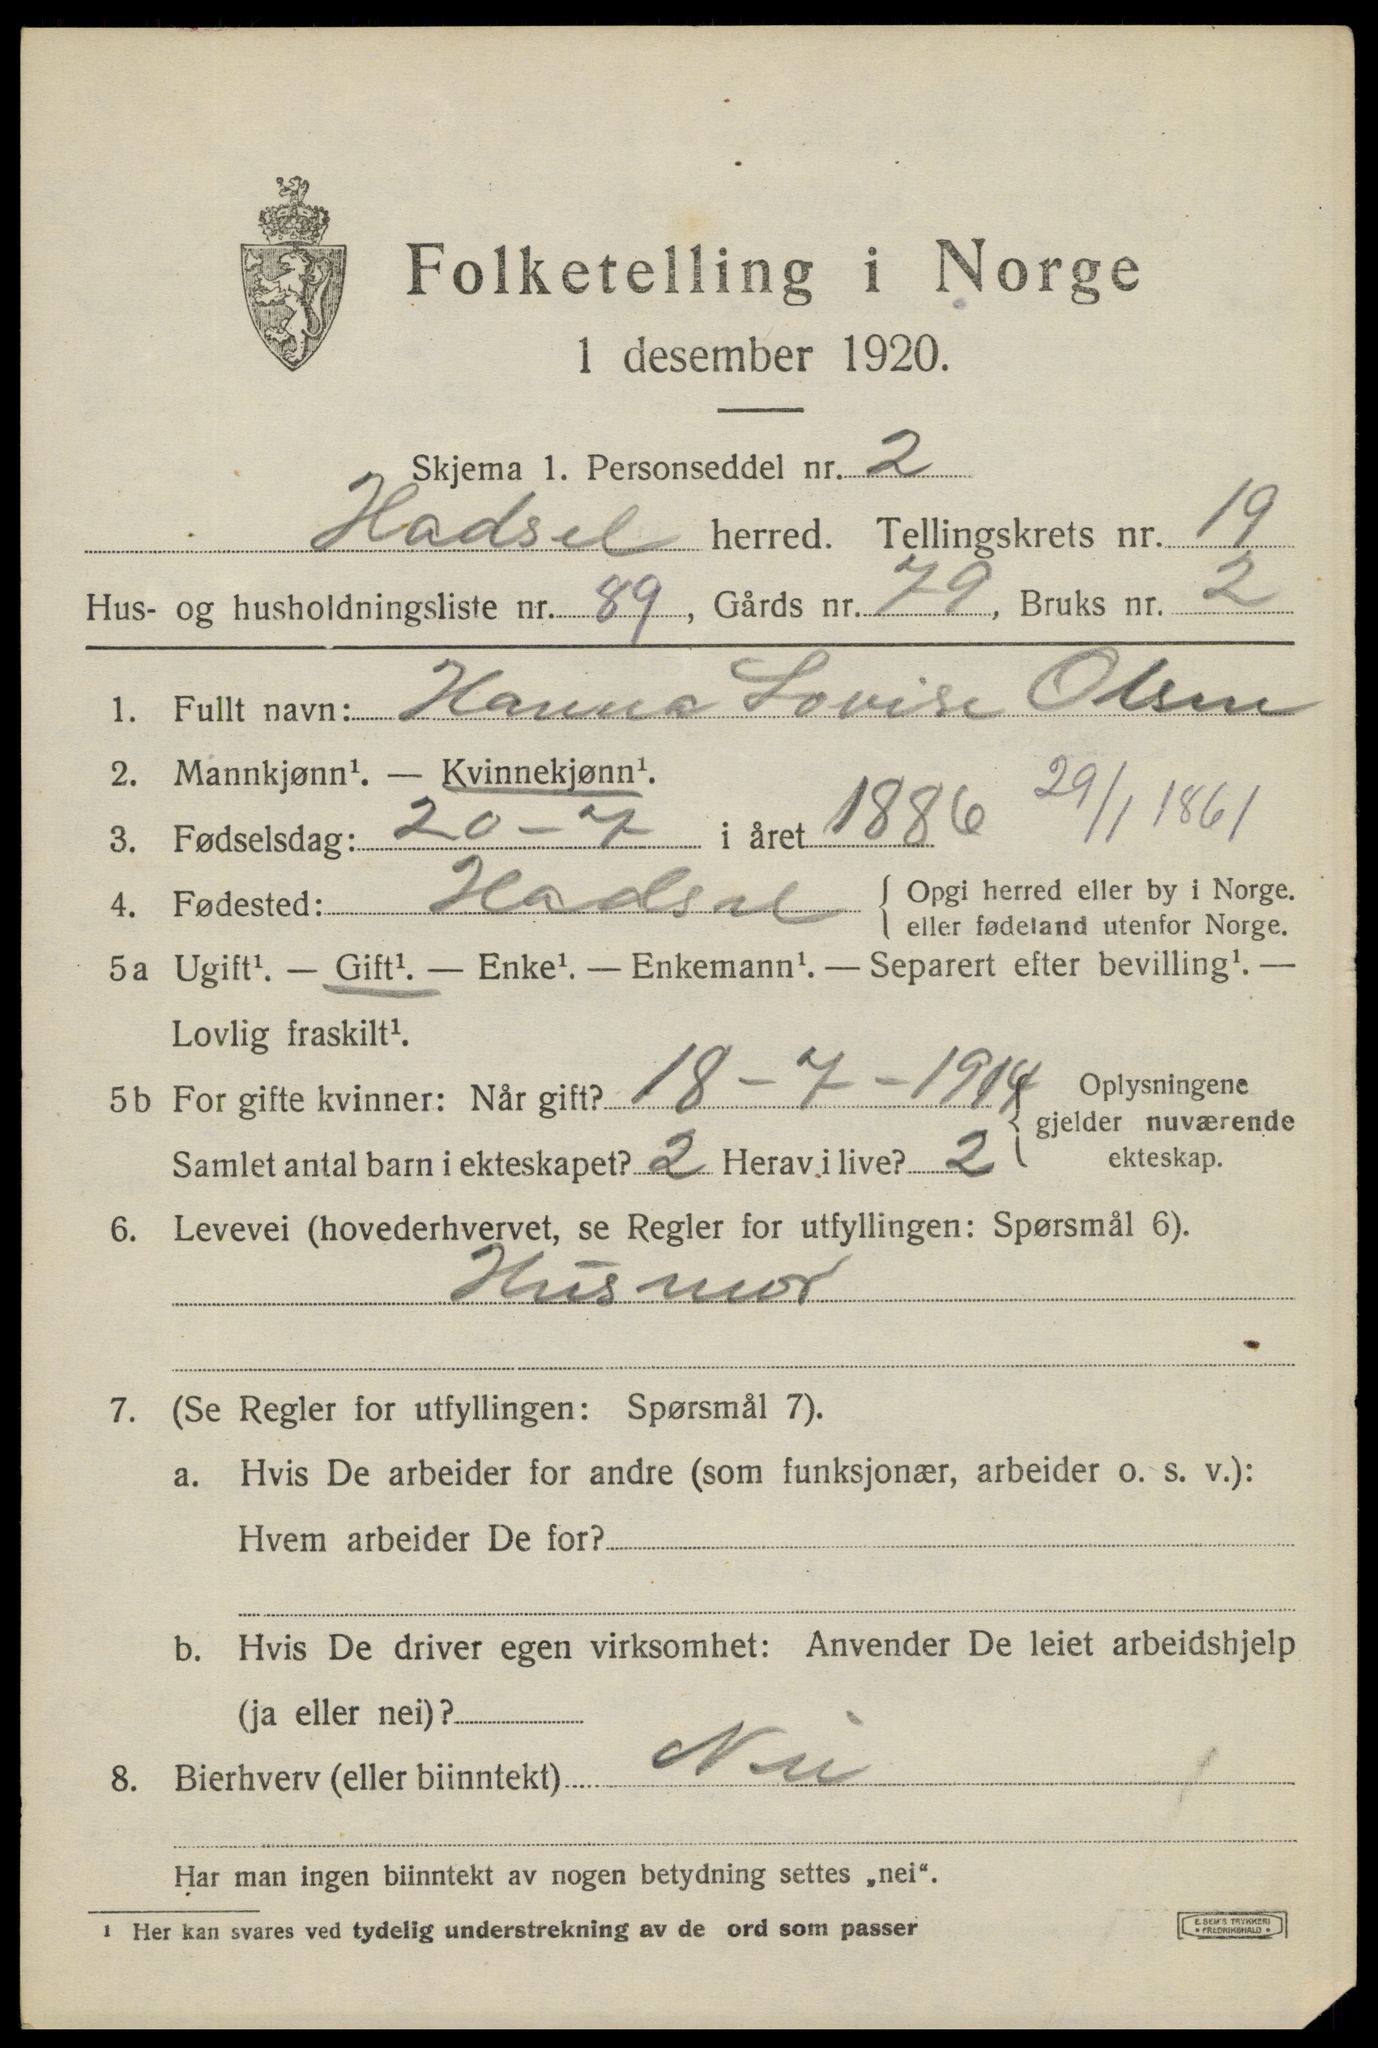 Folketelling i Norge
1 desember 1920.
Skjema 1. Personseddel nr. 2
Hadsel herred. Tellingskrets nr. 19
Hus- og husholdningsliste nr. 89, Gårds nr. 79, Bruks nr. 2
1. Fullt navn: Hanna Lovise Olsen
2. Mannkjønn¹. — Kvinnekjønn¹.
3. Fødselsdag: 20-7 i året 1886 29/1 1861
4. Fødested: Hadsel { Opgi herred eller by i Norge.
eller fødeland utenfor Norge.
5a Ugift¹. — Gift¹. — Enke¹. — Enkemann¹. — Separert efter bevilling¹. —
Lovlig fraskilt¹.
5b For gifte kvinner: Når gift? 18-7-1914 { Oplysningene
gjelder nuværende
Samlet antal barn i ekteskapet? 2 Herav i live? 2 ekteskap.
6. Levevei (hovederhvervet, se Regler for utfyllingen: Spørsmål 6).
Husmor
7. (Se Regler for utfyllingen: Spørsmål 7).
a. Hvis De arbeider for andre (som funksjonær, arbeider o. s. v.):
Hvem arbeider De for?
b. Hvis De driver egen virksomhet: Anvender De leiet arbeidshjelp
(ja eller nei)?
8. Bierhverv (eller biinntekt) Nei
Har man ingen biinntekt av nogen betydning settes „nei“.
¹ Her kan svares ved tydelig understrekning av de ord som passer
E. SEM'S TRYKKERI
• FREDRIKSHALD •